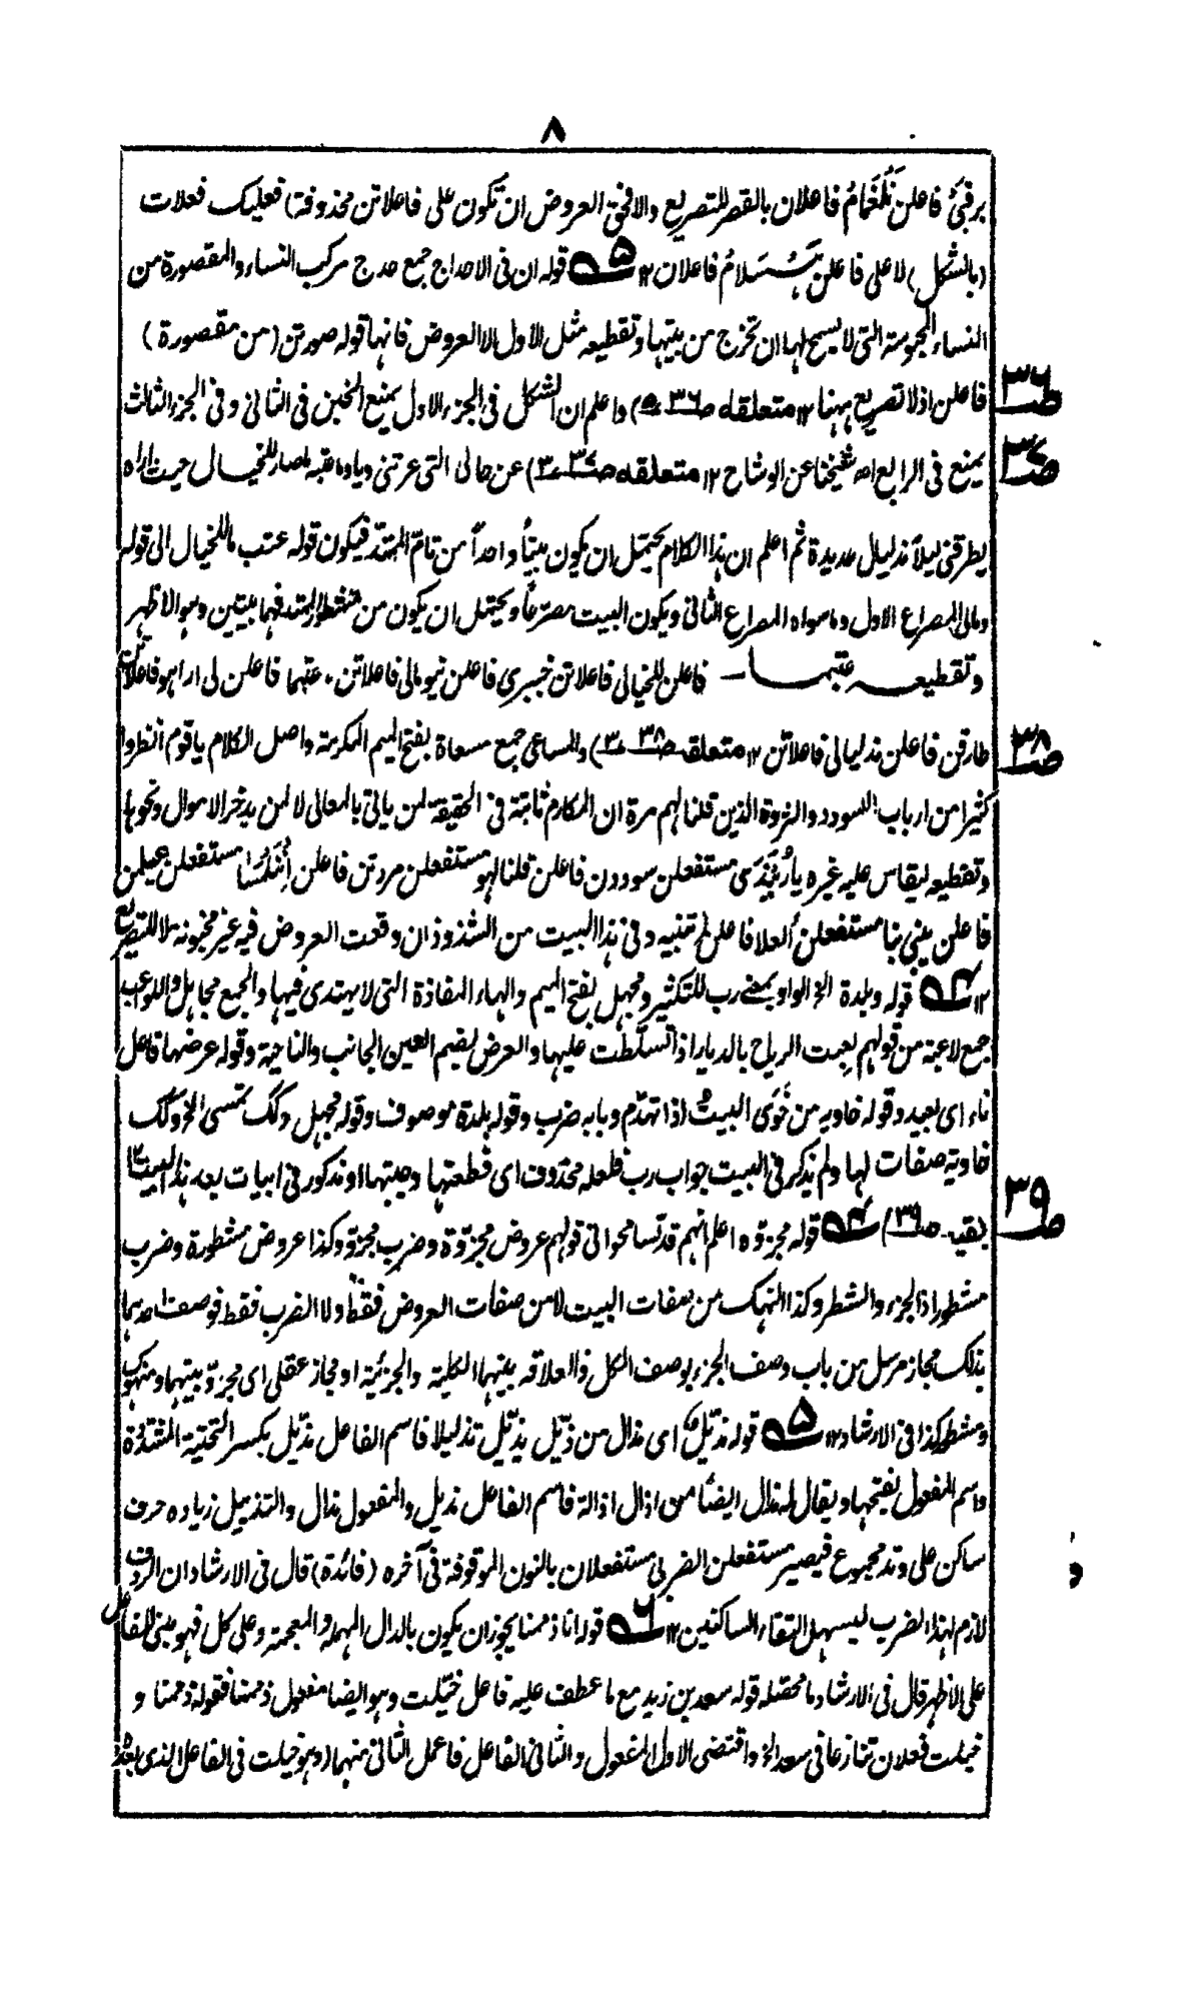 ٨
برفتئ فاعلن نلغمام فاعلان بالقصر للتصريع والا فحق العروض ان تكون على فاعلاتن محذوفة) فعليك فعلات
(بالشكل) لا على فاعلن سلام فاعلان ١٢ ۵ قوله ان فى الاحداج جمع حدج مركب النساء والمقصورة من
النساء المحبوسة التى لا يسمح لها ان تخرج من بيتها وتقطيعه مثل الاول الا العروض فانها قوله صورتن (من مقصورة)
فاعلن اذ لا تصريع ههنا ١٢ متعلقه صـ ٣٦ ـه) واعلم ان الشكل فى الجزء الاول يمنع الخبن فى الثانى وفى الجزء الثالث
ص ٣٦
يمنع فى الرابع اه شيخنا عن الوشاح ١٢ متعلقه صـ ٣٧ ـ٣) عن حالى التى عرتنى وياو ما صار للخيال حيث اراه
ص ٣٧
يطرقنى ليلا مذ ليال عديدة ثم اعلم ان هذا الكلام يحتمل ان يكون بيتًا واحدًا من تام الممتد فيكون قوله عتب ما للخيال الى قوله
ومالى المصراع الاول وما سواه المصراع الثانى ويكون البيت مصرعًا ويحتمل ان يكون من مشطور الممتد فهما بيتين وهو الاظهر
وتقطيعه عتبما ـ فاعلن للخيالى فاعلاتن خبرى فاعلن نيومالى فاعلاتن، عتبما فاعلن لى اراهو فاعلاتن
طارقن فاعلن مذليالى فاعلاتن ١٢ متعلقه صـ ٣٨ ـ٣) والمساعى جمع مسعاة بفتح الميم المكرمة واصل الكلام يا قوم انظروا
ص ٣٨
كثيرا من ارباب السودد والثروة الذين قلنا لهم مرة ان المكارم ثابتة فى الحقيقة لمن ياتى بالمعالى لا لمن يدخر الاموال ونحوها
وتقطيعه ليقاس عليه غيره يا رب ذى مستفعلن سوددن فاعلن قلنا لهو مستفعلن مردتن فاعلن انلمسا مستفعلن عيلمن
فاعلن يبنى بنا مستفعلن ألعلا فاعلن، تنبيه وفى هذا البيت من الشذوذ ان وقعت العروض فيه غير مخبونة لا للتصريع
١٢ ۴ قوله وبلدة الخ الواو بمعنى رب للتكثير ومجهل بفتح الميم والهاء المفازة التى لا يهتدى فيها والجمع مجاهل واللواعب
جمع لاعبة من قولهم لعبت الرياح بالديار اذا تسلطت عليها والعرض بضم العين الجانب والناحية وقوله عرضها فاعل
ناء اى بعيد وقوله خاويه من خوى البيت اذا تهدم وبابه ضرب وقوله بلدة موصوف وقوله مجهل وكك تمسى الخ وكك
خاوية صفات لها ولم يذكر فى البيت جواب رب فلعله محذوف اى قطعتها وجبتها او مذكور فى ابيات بعد هذا البيت ١٢
بقيه صـ ٣٩) ۴ قوله مجزوة اعلم انهم قد تسامحوا فى قولهم عروض مجزوة وضرب مجزو وكذا عروض مشطورة وضرب
ص ٣٩
مشطور اذ الجزء والشطر وكذا النهك من صفات البيت لا من صفات العروض فقط ولا الضرب فقط فوصف احدهما
بذلك مجاز مرسل من باب وصف الجزء بوصف الكل والعلاقه بينهما الكلية والجزئية او مجاز عقلى اى مجزو بيتها ومنهوك
ومشطور كذا فى الارشاد ١٢ ۵ قوله مذيل اى مذال من ذيل يذيل تذليلا فاسم الفاعل مذيل بكسر التحتية المشددة
واسم المفعول بفتحها ويقال له مذال ايضا من اذال اذالة فاسم الفاعل مذيل والمفعول مذال والتذييل زياده حرف
ساكن على وتد مجموع فيصير مستفعلن الضربى مستفعلان بالنون الموقوفة فى آخره (فائدة) قال فى الارشاد ان الردف
لازم لهذا الضرب ليسهل التقاء الساكنين ١٢ ٦ قوله انا ذممنا يجوز ان يكون بالدال المهملة والمعجمة وعلى كل فهو مبنى للفاعل
على الاظهر قال فى الارشاد ما محصله قوله سعد بن زيد مع ما عطف عليه فاعل خيلت وهو ايضا مفعول ذممنا فقوله ذممنا و
خيلت فعلان تنازعا فى سعد الخ واقتضى الاول المفعول والثانى الفاعل فاعمل الثانى منهما (وهو خيلت فى الفاعل الذى بعده